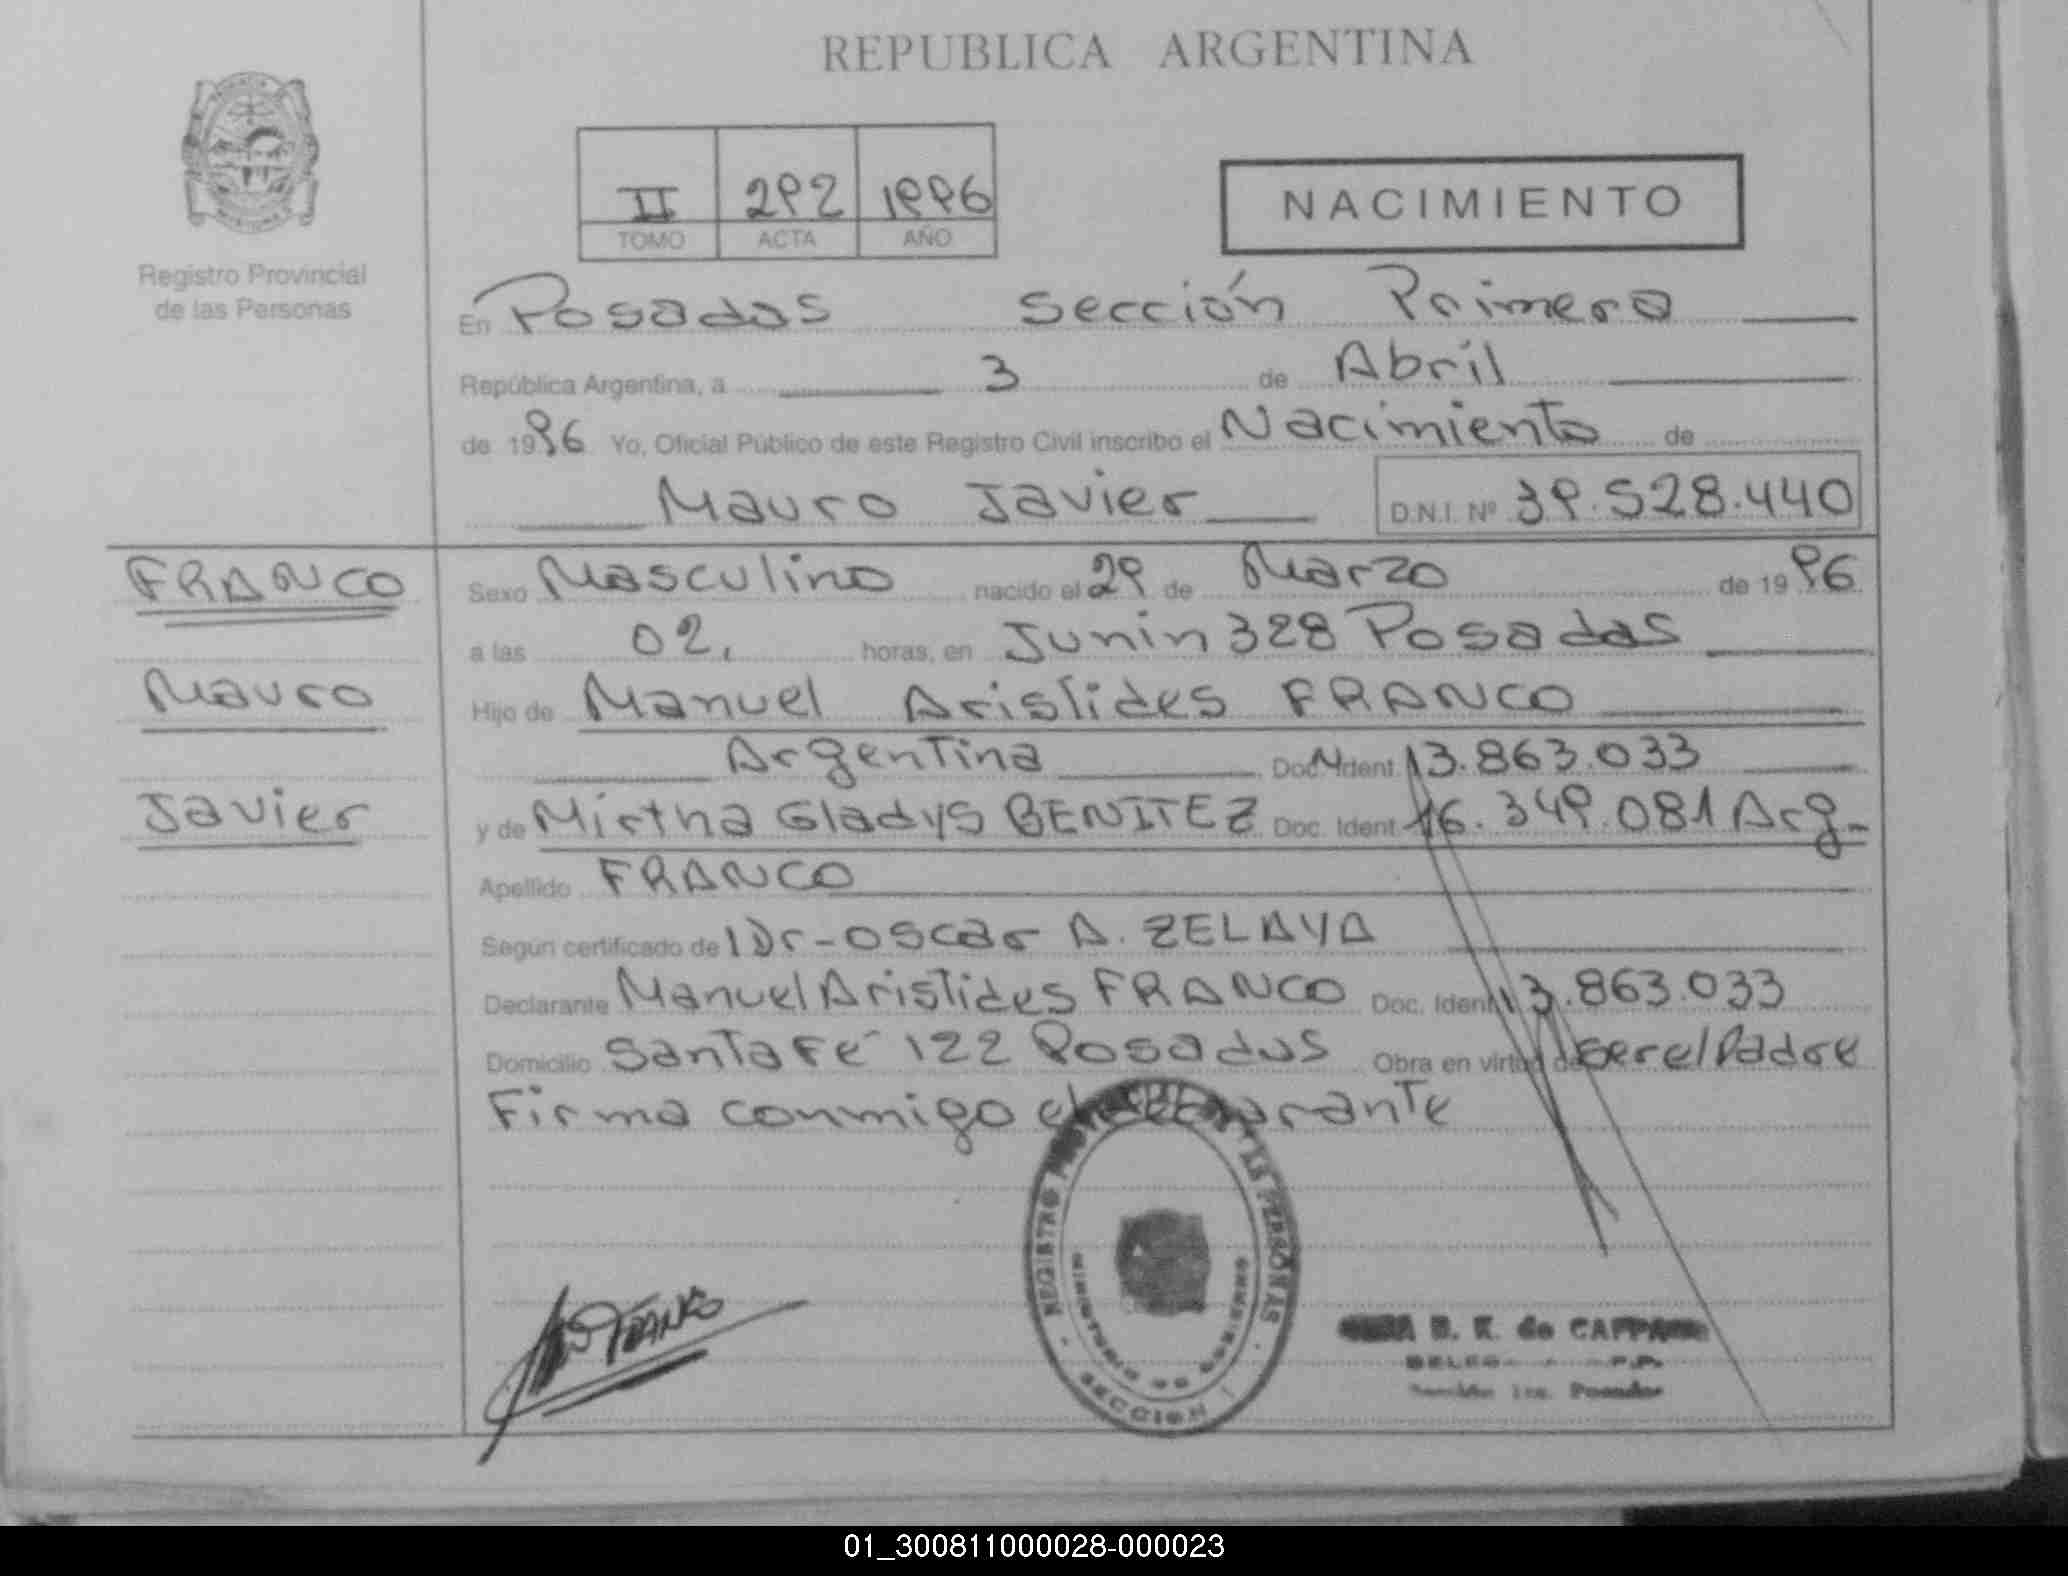 REPUBLICA ARGENTINA
II 292 1996
TOMO ACTA AÑO
NACIMIENTO
Registro Provincial
de las Personas
En Posadas Sección Primera
República Argentina, a 3 de Abril
de 1996 Yo, Oficial Público de este Registro Civil inscribo el Nacimiento de
Mauro Javier D.N.I. Nº 39.528.440
FRANCO
Mauro
Javier
Sexo Masculino nacido el 29 de Marzo de 1996
a las 02, horas, en Junin 328 Posadas
Hijo de Manuel Aristides FRANCO
Argentina Doc. Ident. 13.863.033
y de Mirtha Gladys BENITEZ Doc. Ident. 16.349.081 Arg.
Apellido FRANCO
Según certificado de Dr. Oscar A. ZELAYA
Declarante Manuel Aristides FRANCO Doc. Ident. 13.863.033
Domicilio Santa Fé 122 Posadas Obra en virtud de ser el Padre
Firma conmigo el declarante
REGISTRO LAS PERSONAS
MINISTERIO DE GOBIERNO
SECCION
B. K. de
Sección 1ra. Posadas
01_300811000028-000023